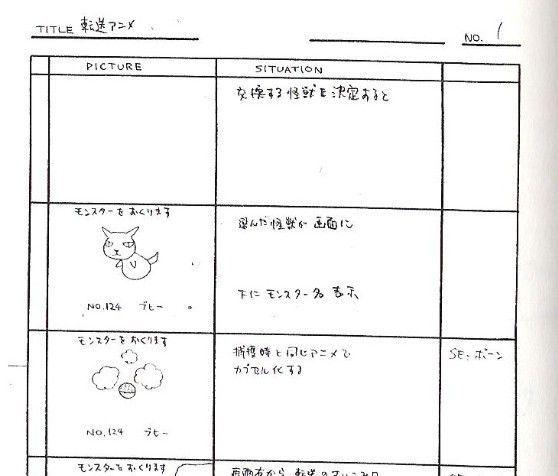 TITLE 転送アニメ
NO. 1
PICTURE
SITUATION
交換する怪獣を決定すると
モンスターをおくります
選んだ怪獣が画面に
下にモンスター名表示
NO.124 プヒー
モンスターをおくります
捕獲時と同じアニメで
カプセル化する
SE:ボーン
NO.124 プヒー
モンスターをおくります